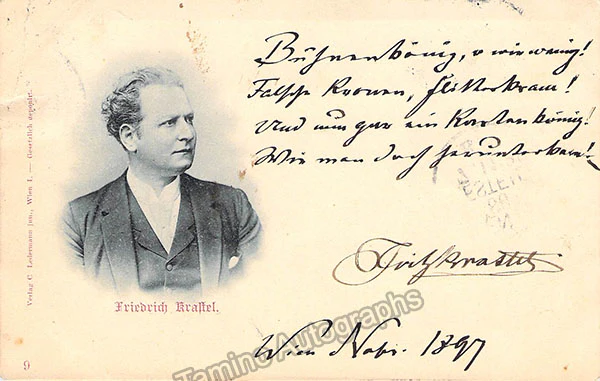 Bühnenkönig, o wie wenig!
Falsche Kronen, Flitterkram!
Und nun gar ein Kartenkönig!
Wie man doch herunterkam!
Fritz Krastel
Wien Nobr. 1897
Friedrich Krastel.
Verlag C. Ledermann jun., Wien I. — Gesetzlich deponirt.
9
Tamino Autographs